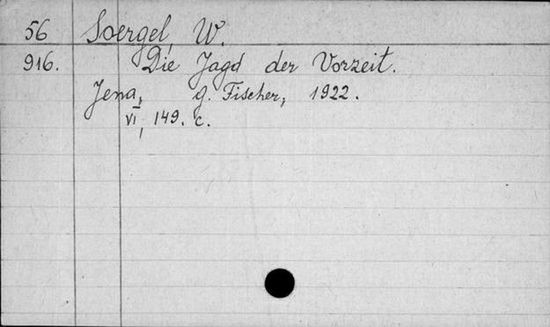 56 Soergel W.
916. Die Jagd der Vorzeit.
Jena, G. Fischer, 1922.
VI, 149. c.